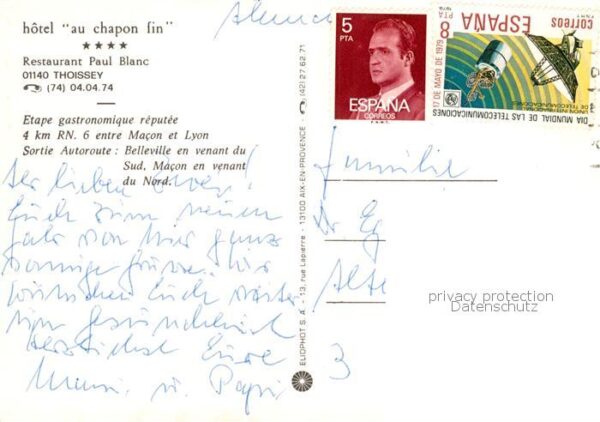 hôtel "au chapon fin"
★★★★
Restaurant Paul Blanc
01140 THOISSEY
(74) 04.04.74
Etape gastronomique réputée
4 km RN. 6 entre Maçon et Lyon
Sortie Autoroute : Belleville en venant du
Sud, Maçon en venant
du Nord.
Ihr lieben
Euch zum neuen
Jahr von hier ganz
sonnige Grüsse. Wir
wünschen Euch weiter
hin Gesundheit
herzlichst Eure
u. Papi
ELIOPHOT S. A. - 13, rue Lapierre - 13100 AIX-EN-PROVENCE - (42) 27.62.71
5
PTA
ESPAÑA
CORREOS
ESPAÑA
correos
8
PTA
17 DE MAYO DE 1979
DIA MUNDIAL DE LAS TELECOMUNICACIONES
UNION INTERNACIONAL
DE TELECOMUNICACIONES
Familie
Dr
Alte
3
privacy protection
Datenschutz